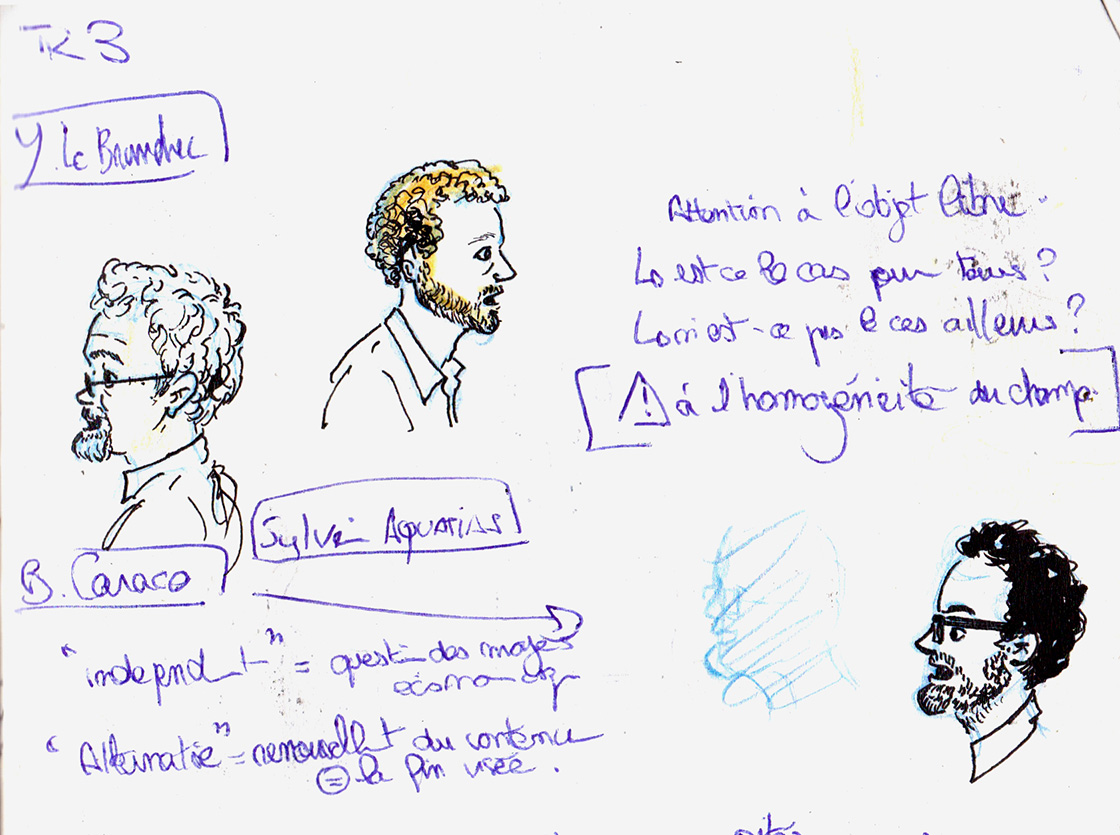 TK 3
Y. Le
Attention à l'objet libre.
Ls est ce le cas pour tous ?
Ls n'est-ce pas le cas ailleurs ?
⚠ à l'homogénéité du champ
Sylvain AQUATIAS
B. Caraco
"independt" = questi des moyens
economiq
"Alternatie" = renouvellt du contenu
= la fin visée.